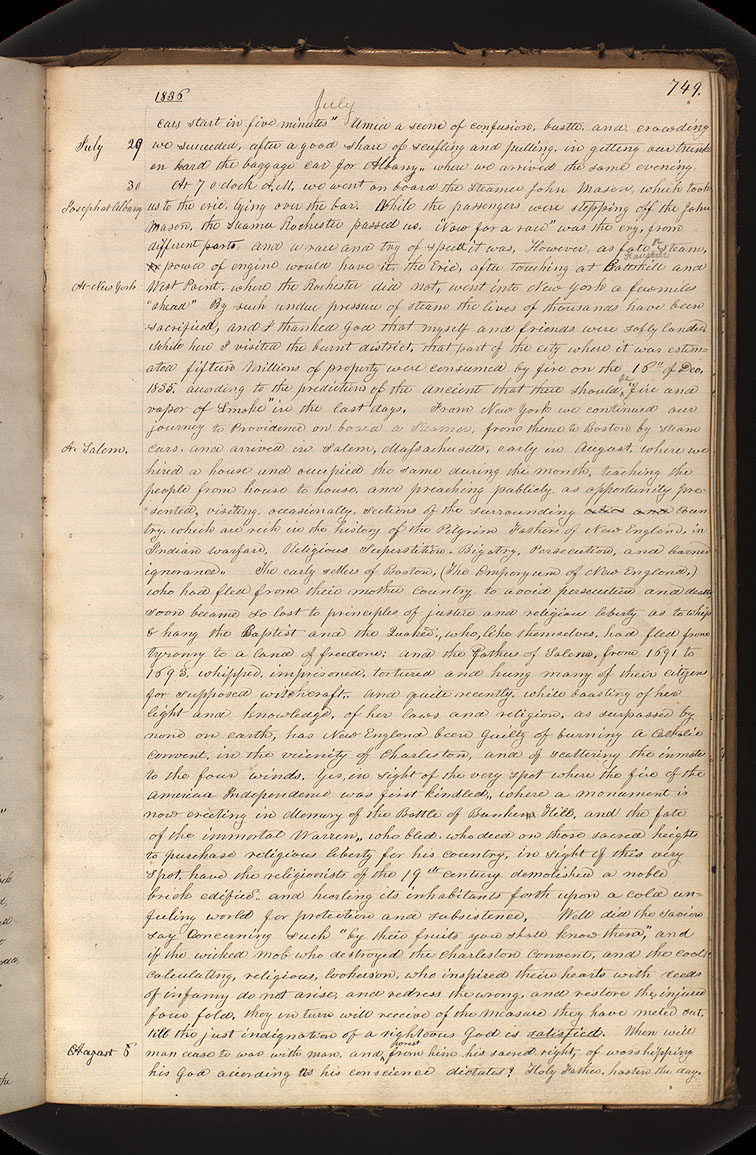 1836
749.
July
cars start in five minutes" Amid a scene of confusion, bustle, and crowding
July 29 we succeeded, after a good share of scufling and pulling, in getting our trunks
on board the baggage car for Albany,, where we arrived the same evening.
30 At 7 o clock A.M. we went on board the Steamer John Mason, which took
Joseph at Albany us to the erie, lying over the bar. While the passengers were stepping off the John
Mason, the Steamer Rochester passed us. "Now for a race" was the cry, from
different parts, and a race and try of speed it was, However, as fate & steam,
power of engine would have it the Erie, after touching at Catskill and
Kauskill
At New York West Point, where the Rochester did not, went into New York a few miles
"ahead" By such undue pressure of steam the lives of thousands have been
sacrificed, and I thanked God that myself and friends were safly landed
While here I visited the burnt district, that part of the city where it was estim-
ated fifteen millions of property were consumed by fire on the 16th of Dec,
be
1835. acording to the prediction of the ancient that there should, "fire and
vapor of Smoke" in the last days. From New York we continued our
journey to Providence on board a Steamer, from thence to Boston by Steam
At Salem. cars, and arrived in Salem, Massachusetts, early in August, where we
hired a house and occupied the same during the month, teaching the
people from house to house, and preaching publicly as opportunity pre-
sented, visiting occasionally, sections of the surrounding coun
try, which are rich in the history of the Pilgrim Fathers of New England, in
Indian warfare, Religious Superstition, Bigotry, Persecution, and learned
ignorance. The early settlers of Boston, (The Emporyum of New England,)
who had fled from their mother country to avoid persecution and death
soon became so lost to principles of justice and religious liberty as to whip
& hang the Baptist and the Quaker, who, like themselves, had fled from
tyranny to a land of freedom; and the Fathers of Salem, from 1691 to
1693, whipped, imprisoned, tortured and hung many of their citizens
for supposed witchcraft, and quite recently, while boasting of her
light and knowledge, of her laws and religion, as surpassed by
none on earth, has New England been guilty of burning a Catholic
convent, in the vicinity of Charleston, and of scattering the inmates
to the four winds. Yes, in sight of the very spot where the fire of the
American Independence was first kindled, where a monument is
now erecting in memory of the Battle of Bunker Hill, and the fate
of the immortal Warren, who bled, who died on those sacred heights
to purchase religious liberty for his country, in sight of this very
spot, have the religionists of the 19th century demolished a noble
brick edifice, and hurling its inhabitants forth upon a cold un-
feeling world for protection and subsistence, Well did the Savior
say Concerning such "by their fruits you shall know them," and
if the wicked mob who destroyed the Charleston Convent, and the cool
calculating, religious, lookerson, who inspired their hearts with deeds
of infamy do not arise, and redress the wrong, and restore the injured
four fold, they in turn will receive of the measure they have meted out,
till the just indignation of a righteous God is satisfied. When will
worest
August 8 man cease to war with man, and, from him his sacred right, of worshipping
his God acording as his conscience dictates? Holy Father, hasten the day.